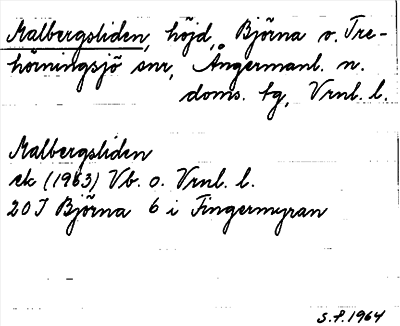 Malbergsliden, höjd, Björna o. Tre-
hörningsjö snr, Ångermanl. n.
doms. tg, Vrnl. l.
Malbergsliden
ek (1963) Vb. o. Vrnl. l.
20 J Björna 6 i Fingermyran
S.f. 1964